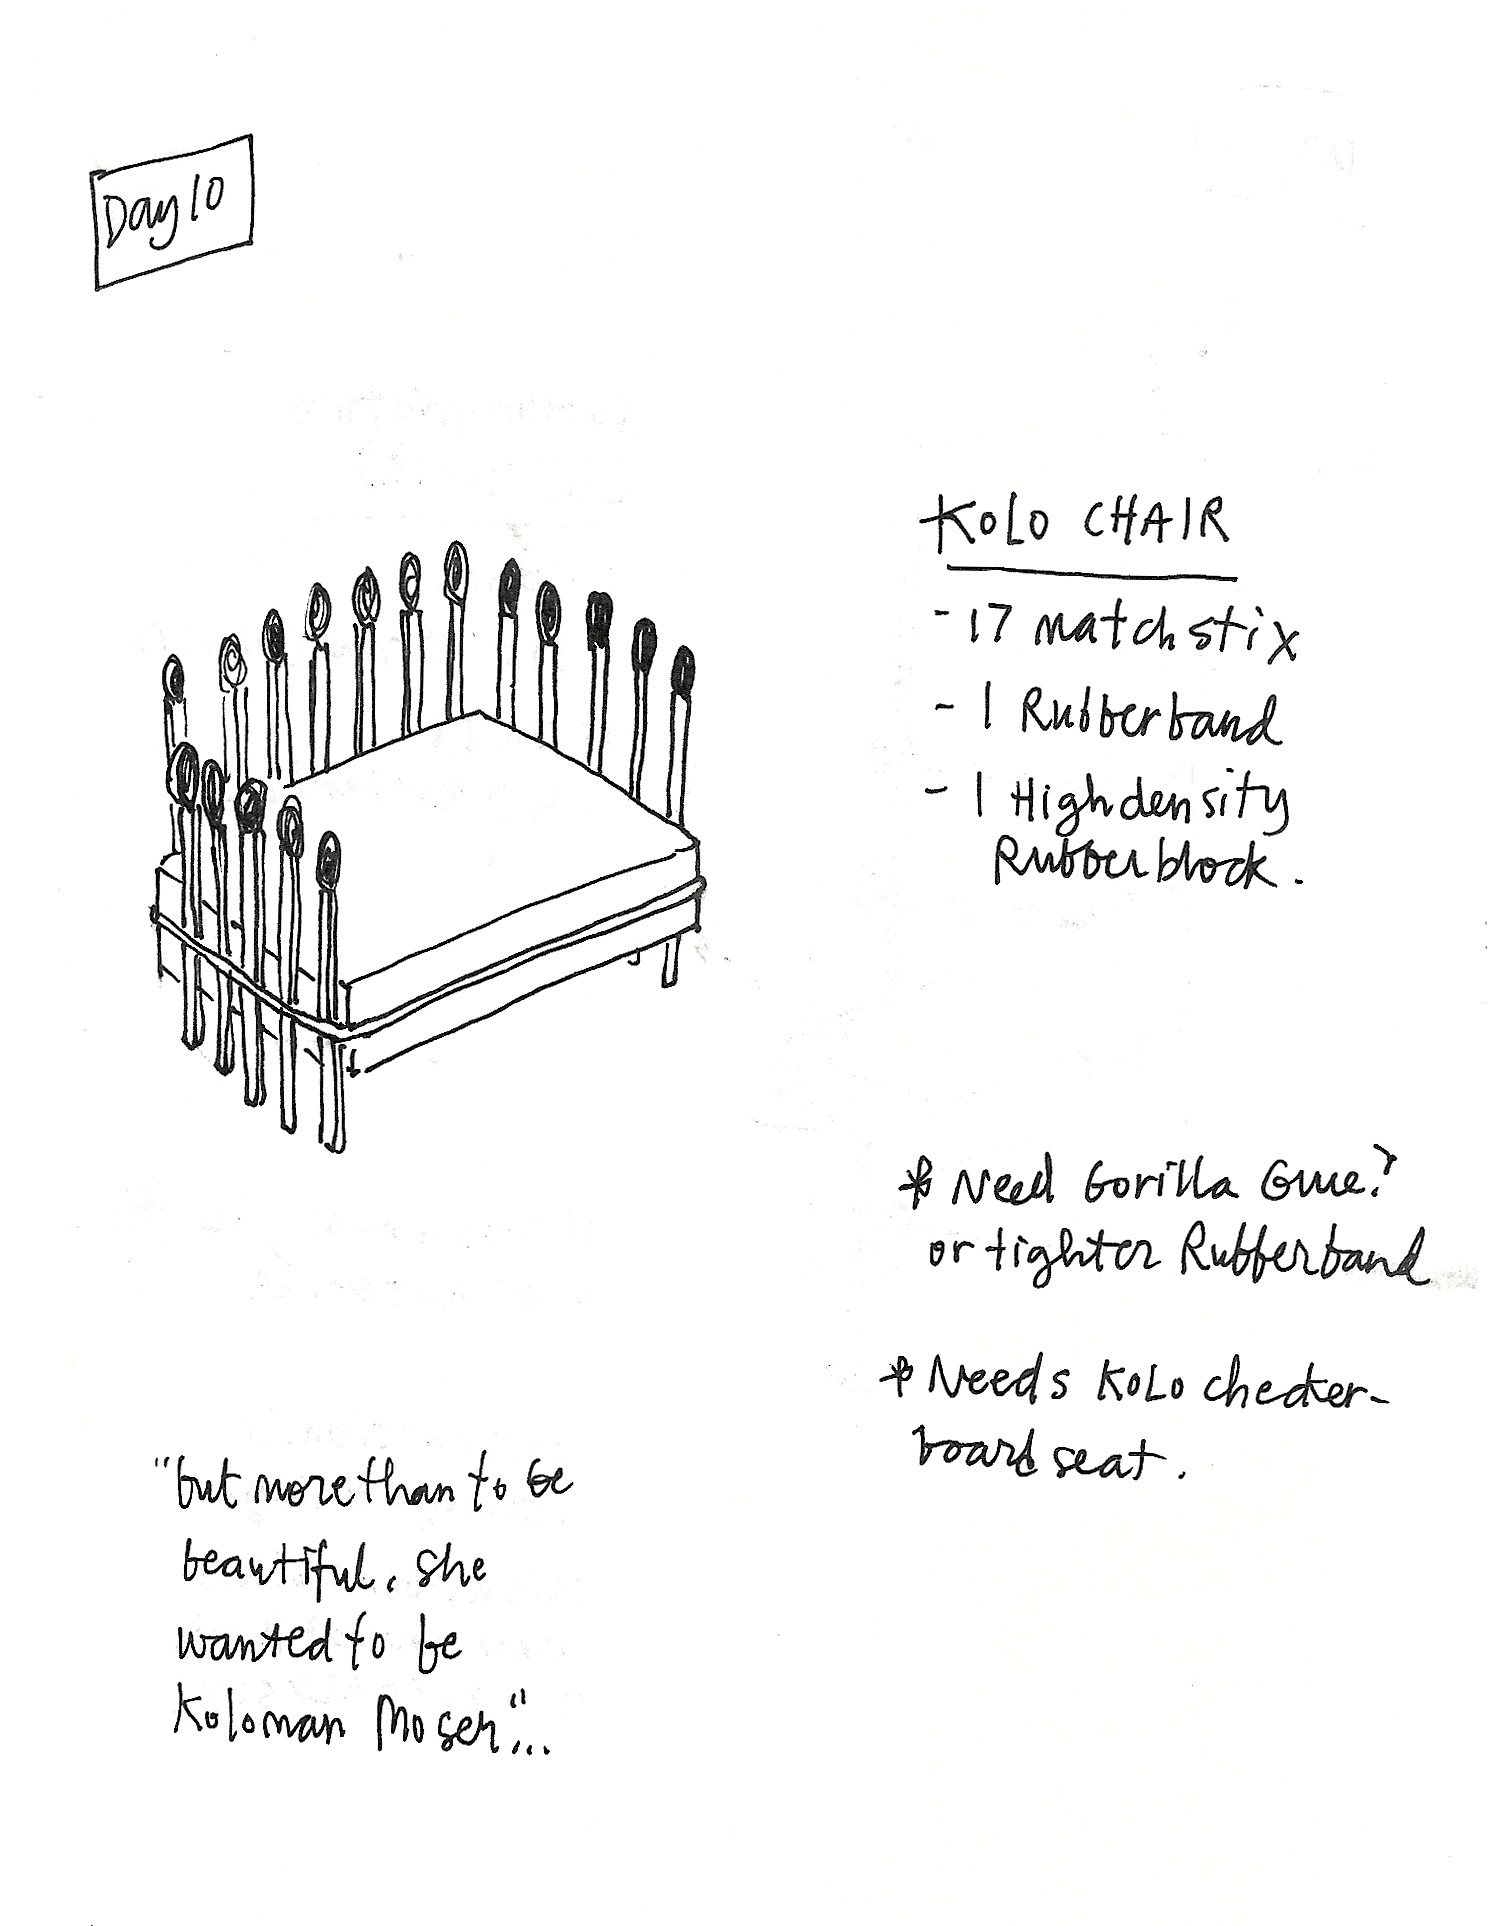 Day 10
KOLO CHAIR
- 17 matchstix
- 1 Rubberband
- 1 Highdensity
Rubberblock.
* Need Gorilla Glue?
or tighter Rubberband
* Needs KoLo checker-
board seat.
"but more than to be
beautiful, she
wanted to be
Koloman Moser"...